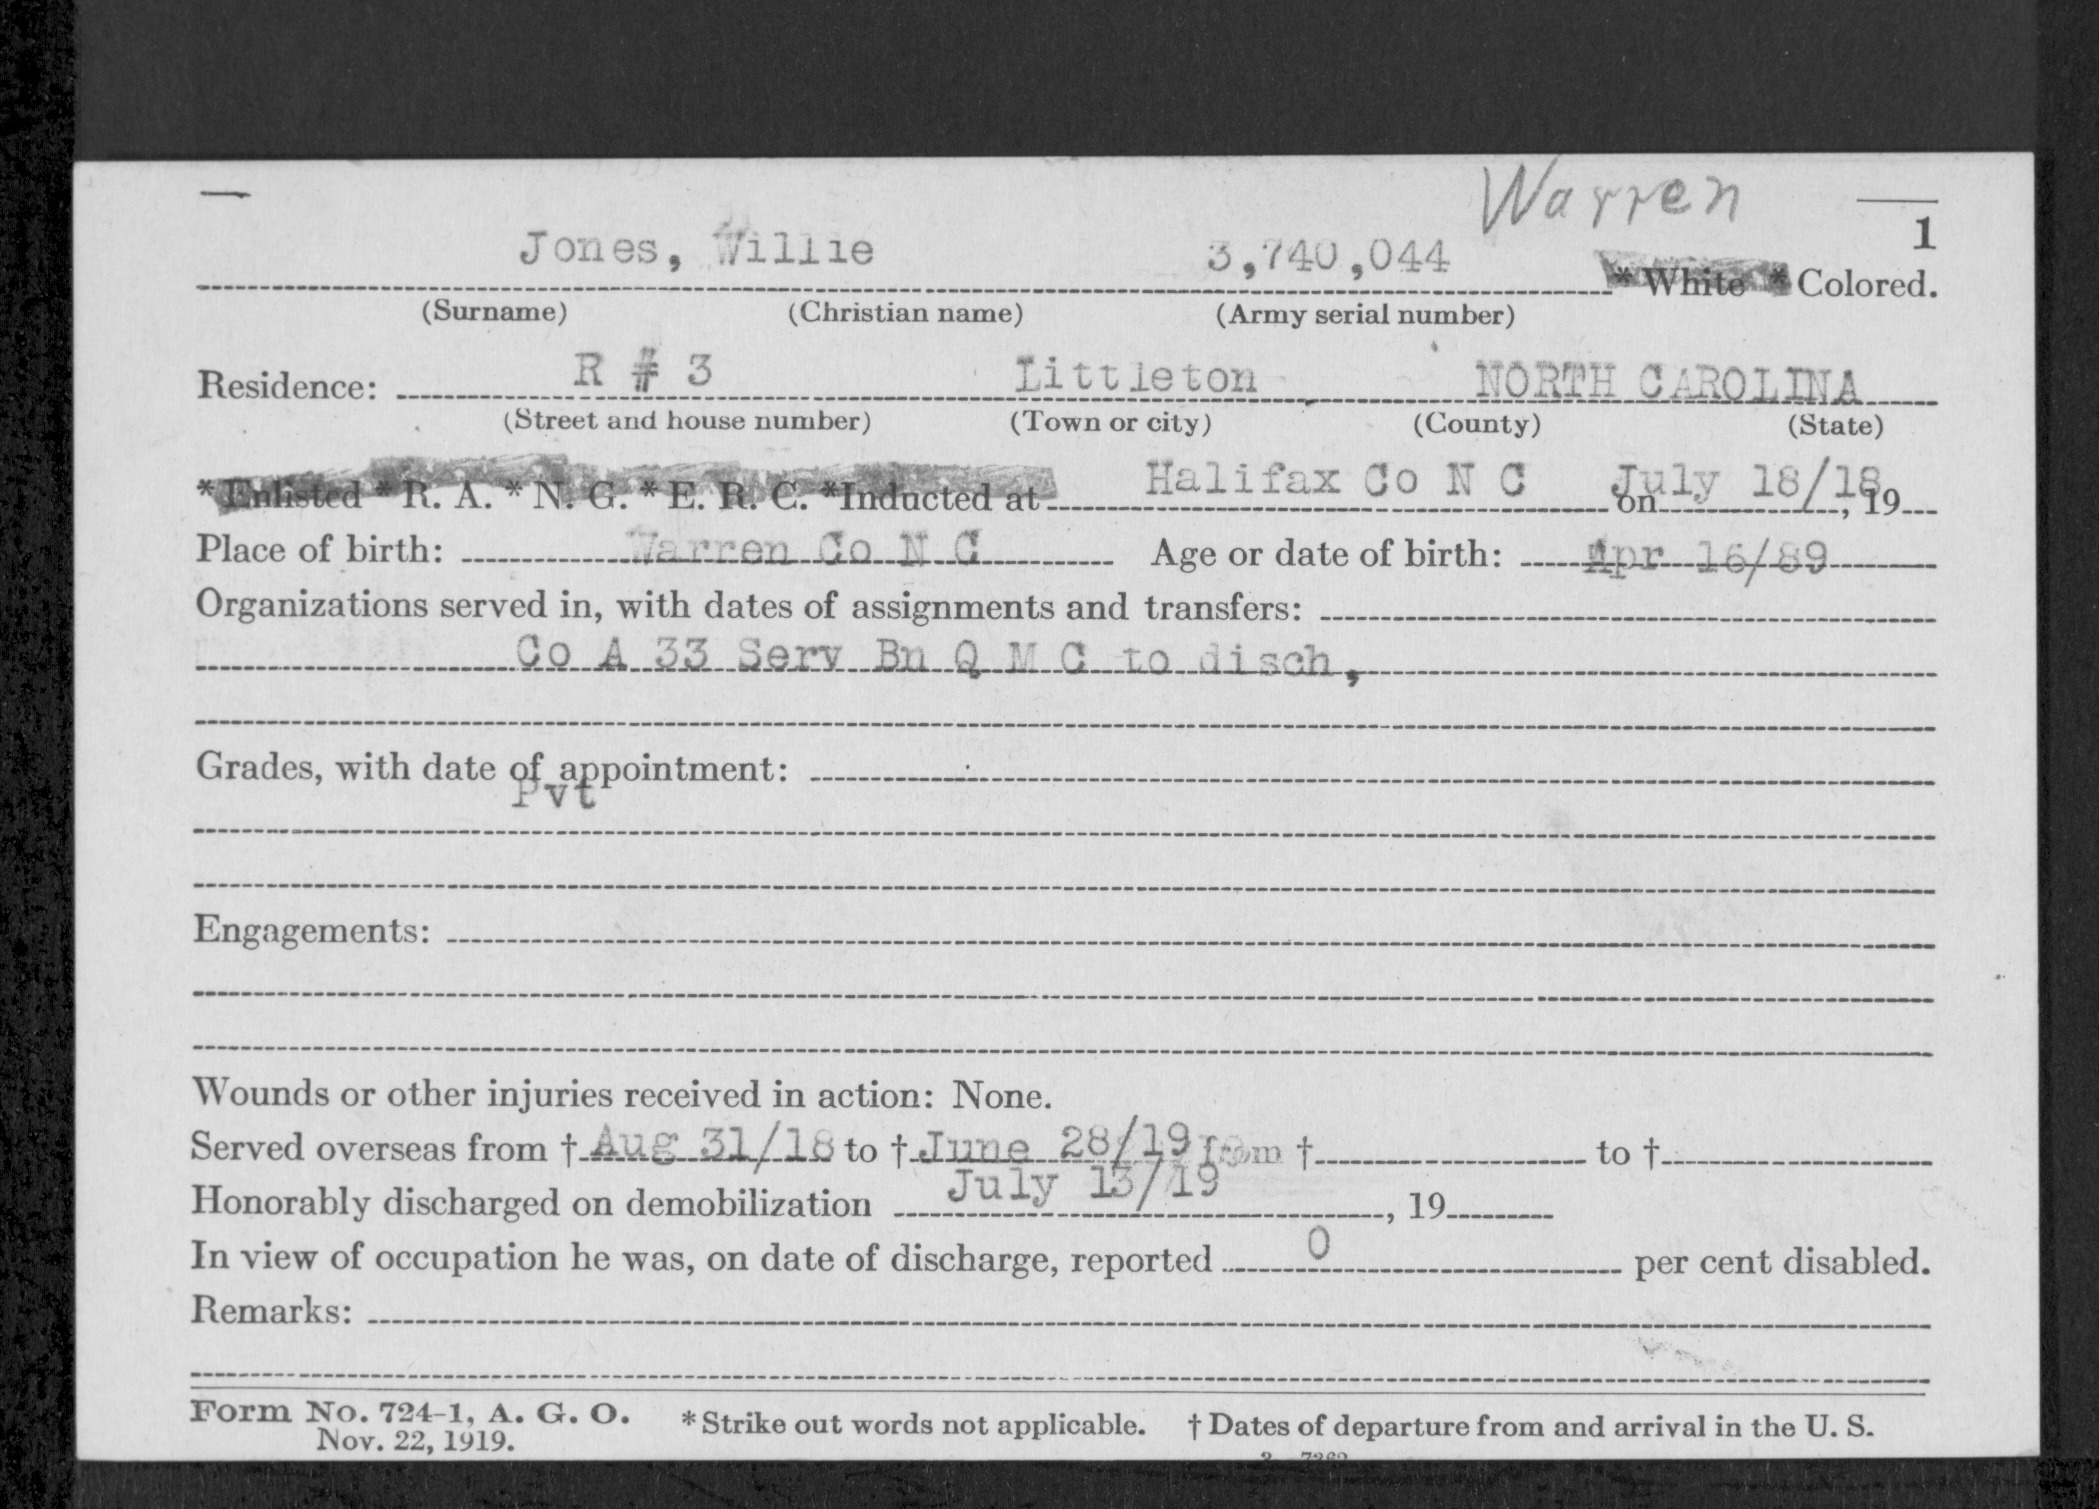 Warren
1
Jones, Willie 3,740,044 * White * Colored.
(Surname) (Christian name) (Army serial number)
Residence: R # 3 Littleton NORTH CAROLINA
(Street and house number) (Town or city) (County) (State)
*Enlisted *R. A. *N. G. *E. R. C. *Inducted at Halifax Co N C on July 18/18, 19
Place of birth: Warren Co N C Age or date of birth: Apr 16/89
Organizations served in, with dates of assignments and transfers:
Co A 33 Serv Bn Q M C to disch,
Grades, with date of appointment:
Pvt
Engagements:
Wounds or other injuries received in action: None.
Served overseas from † Aug 31/18 to † June 28/19 from † to †
Honorably discharged on demobilization July 13/19, 19
In view of occupation he was, on date of discharge, reported 0 per cent disabled.
Remarks:
Form No. 724-1, A. G. O. *Strike out words not applicable. † Dates of departure from and arrival in the U. S.
Nov. 22, 1919.